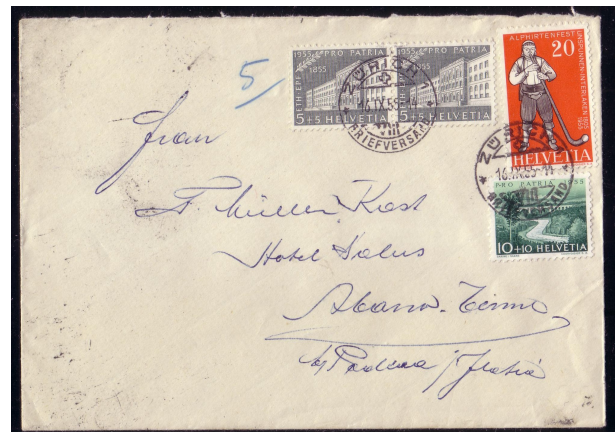 1955 PRO PATRIA
ETH·EPF
1855
5+5 HELVETIA
1955 PRO PATRIA
1855
5+5 HELVETIA
ZÜRICH 1
BRIEFVERSAND
VIII
ALPHIRTENFEST
UNSPUNNEN-INTERLAKEN
1955
20
HELVETIA
ZÜRICH
16.IX.55
PRO PATRIA 1955
10+10 HELVETIA
5
Frau
Müller-Kost
Hotel Salus
Abano-Terme
b/ Padova / Italia